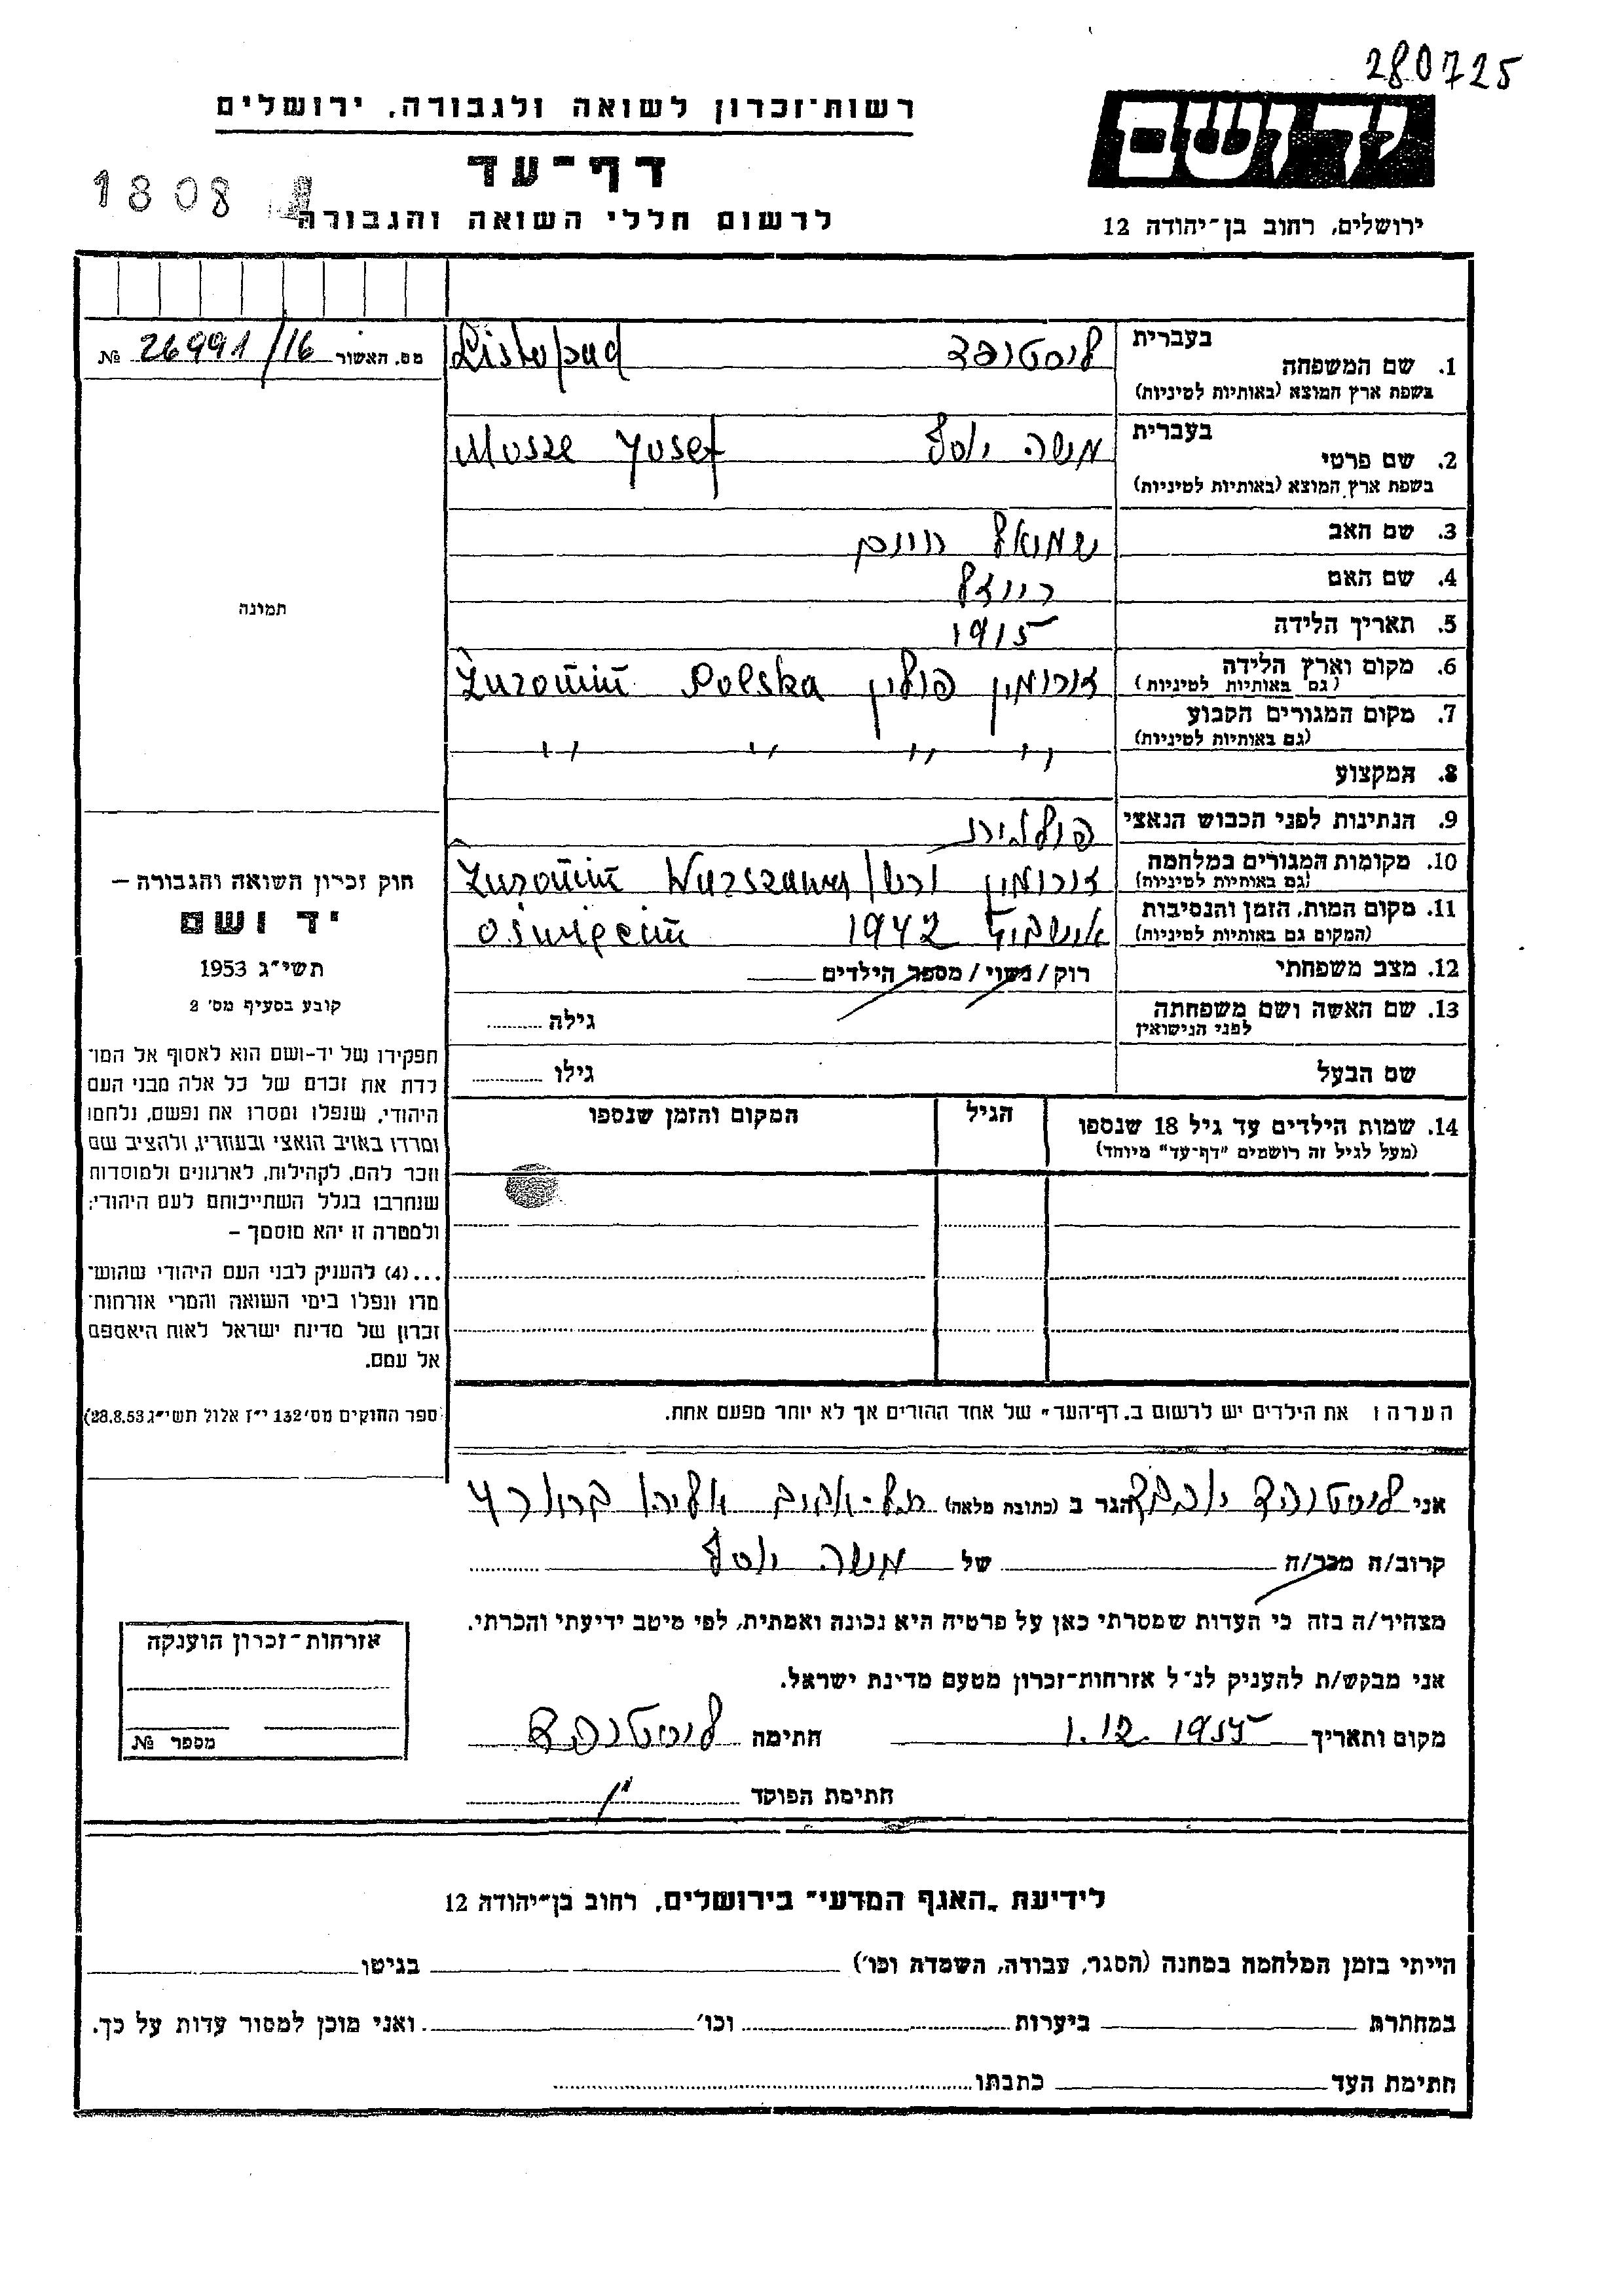 280725
רשות־זכרון לשואה ולגבורה, ירושלים
דף־עד
1808
לרשום חללי השואה והגבורה
יד ושם
ירושלים, רחוב בן־יהודה 12
מס. האשור 26991/16 №
תמונה
חוק זכרון השואה והגבורה –
יד ושם
תשי״ג 1953
קובע בסעיף מס׳ 2
תפקידו של יד-ושם הוא לאסוף אל המו־
לדת את זכרם של כל אלה מבני העם
היהודי, שנפלו ומסרו את נפשם, נלחמו
ומרדו באויב הנאצי ובעוזריו, ולהציב שם
וזכר להם, לקהילות, לארגונים ולמוסדות
שנחרבו בגלל השתייכותם לעם היהודי;
ולמטרה זו יהא מוסמך –
...(4) להעניק לבני העם היהודי שהוש־
מדו ונפלו בימי השואה והמרי אזרחות־
זכרון של מדינת ישראל לאות היאספם
אל עמם.
ספר החוקים מס׳ 132 י״ז אלול תשי״ג 28.8.53)
בעברית
1. שם המשפחה ליסטופד Listopad
בשפת ארץ המוצא (באותיות לטיניות)
בעברית
2. שם פרטי משה יוסף Mosze Josef
בשפת ארץ המוצא (באותיות לטיניות)
3. שם האב שמואל חיים
4. שם האם רייזל
5. תאריך הלידה 1915
6. מקום וארץ הלידה זורומין פולין Żuromin Polska
(גם באותיות לטיניות)
7. מקום המגורים הקבוע ,, ,, ,, ,,
(גם באותיות לטיניות)
8. המקצוע
9. הנתינות לפני הכבוש הנאצי פולנית
10. מקומות המגורים במלחמה זורומין Żuromin Warszawa
(גם באותיות לטיניות)
11. מקום המות, הזמן והנסיבות 1942 Oświęcim
(המקום גם באותיות לטיניות)
12. מצב משפחתי רוק/נשוי/מספר הילדים
13. שם האשה ושם משפחתה גילה
לפני הנישואין
שם הבעל גילו
14. שמות הילדים עד גיל 18 שנספו הגיל המקום והזמן שנספו
(מעל לגיל זה רושמים "דף־עד" מיוחד)
הערה: את הילדים יש לרשום ב„דף־העד״ של אחד ההורים אך לא יותר מפעם אחת.
אני ליסטופד יוכבד הגר ב (כתובת מלאה) תל-אביב
קרוב/ה מכר/ה של משה יוסף
מצהיר/ה בזה כי העדות שמסרתי כאן על פרטיה היא נכונה ואמתית, לפי מיטב ידיעתי והכרתי.
אני מבקש/ת להעניק לנ״ל אזרחות־זכרון מטעם מדינת ישראל.
מקום ותאריך 1.12.1955 חתימה ליסטופד
חתימת הפוקד
אזרחות־זכרון הוענקה
מספר №
לידיעת „האגף המדעי״ בירושלים, רחוב בן־יהודה 12
הייתי בזמן המלחמה במחנה (הסגר, עבודה, השמדה וכו׳) בגיטו
במחתרת ביערות וכו׳ ואני מוכן למסור עדות על כך.
חתימת העד כתבתו